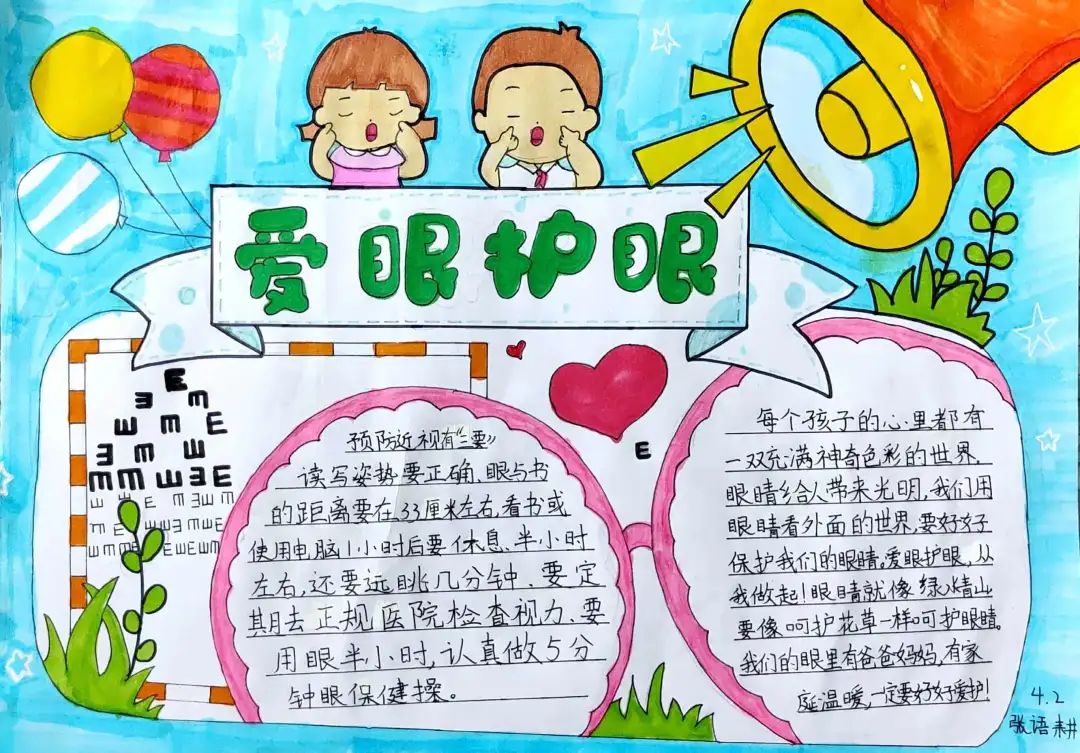 爱眼护眼
E
E
预防近视有“三要”
读写姿势要正确、眼与书
的距离要在33厘米左右,看书或
使用电脑1小时后要休息、半小时
左右,还要远眺几分钟、要定
期去正规医院检查视力、要
用眼半小时,认真做5分
钟眼保健操。
每个孩子的心里都有
一双充满神奇色彩的世界.
眼睛给人带来光明,我们用
眼睛看外面的世界,要好好
保护我们的眼睛。爱眼护眼,从
我做起!眼睛就像绿水青山
要像呵护花草一样呵护眼睛。
我们的眼里有爸爸妈妈,有家
庭温暖,一定要好好爱护!
4.2
张语耕